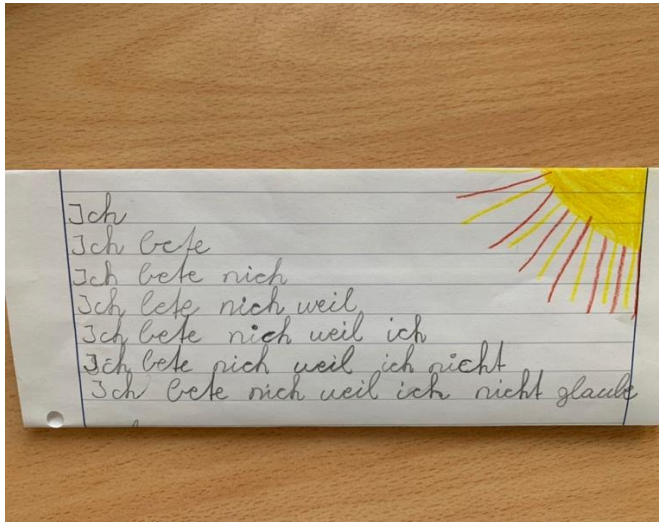 Ich
Ich bete
Ich bete nich
Ich bete nich weil
Ich bete nich weil ich
Ich bete nich weil ich nicht
Ich bete nich weil ich nicht glaube